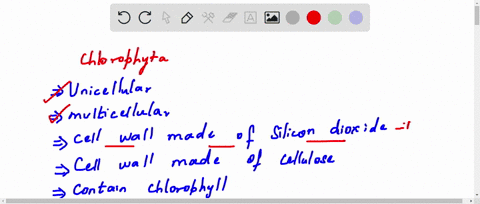 Chlorophyta
⇒ Unicellular
⇒ multicellular
⇒ cell wall made of Silicon dioxide
⇒ Cell wall made of cellulose
⇒ Contain chlorophyll